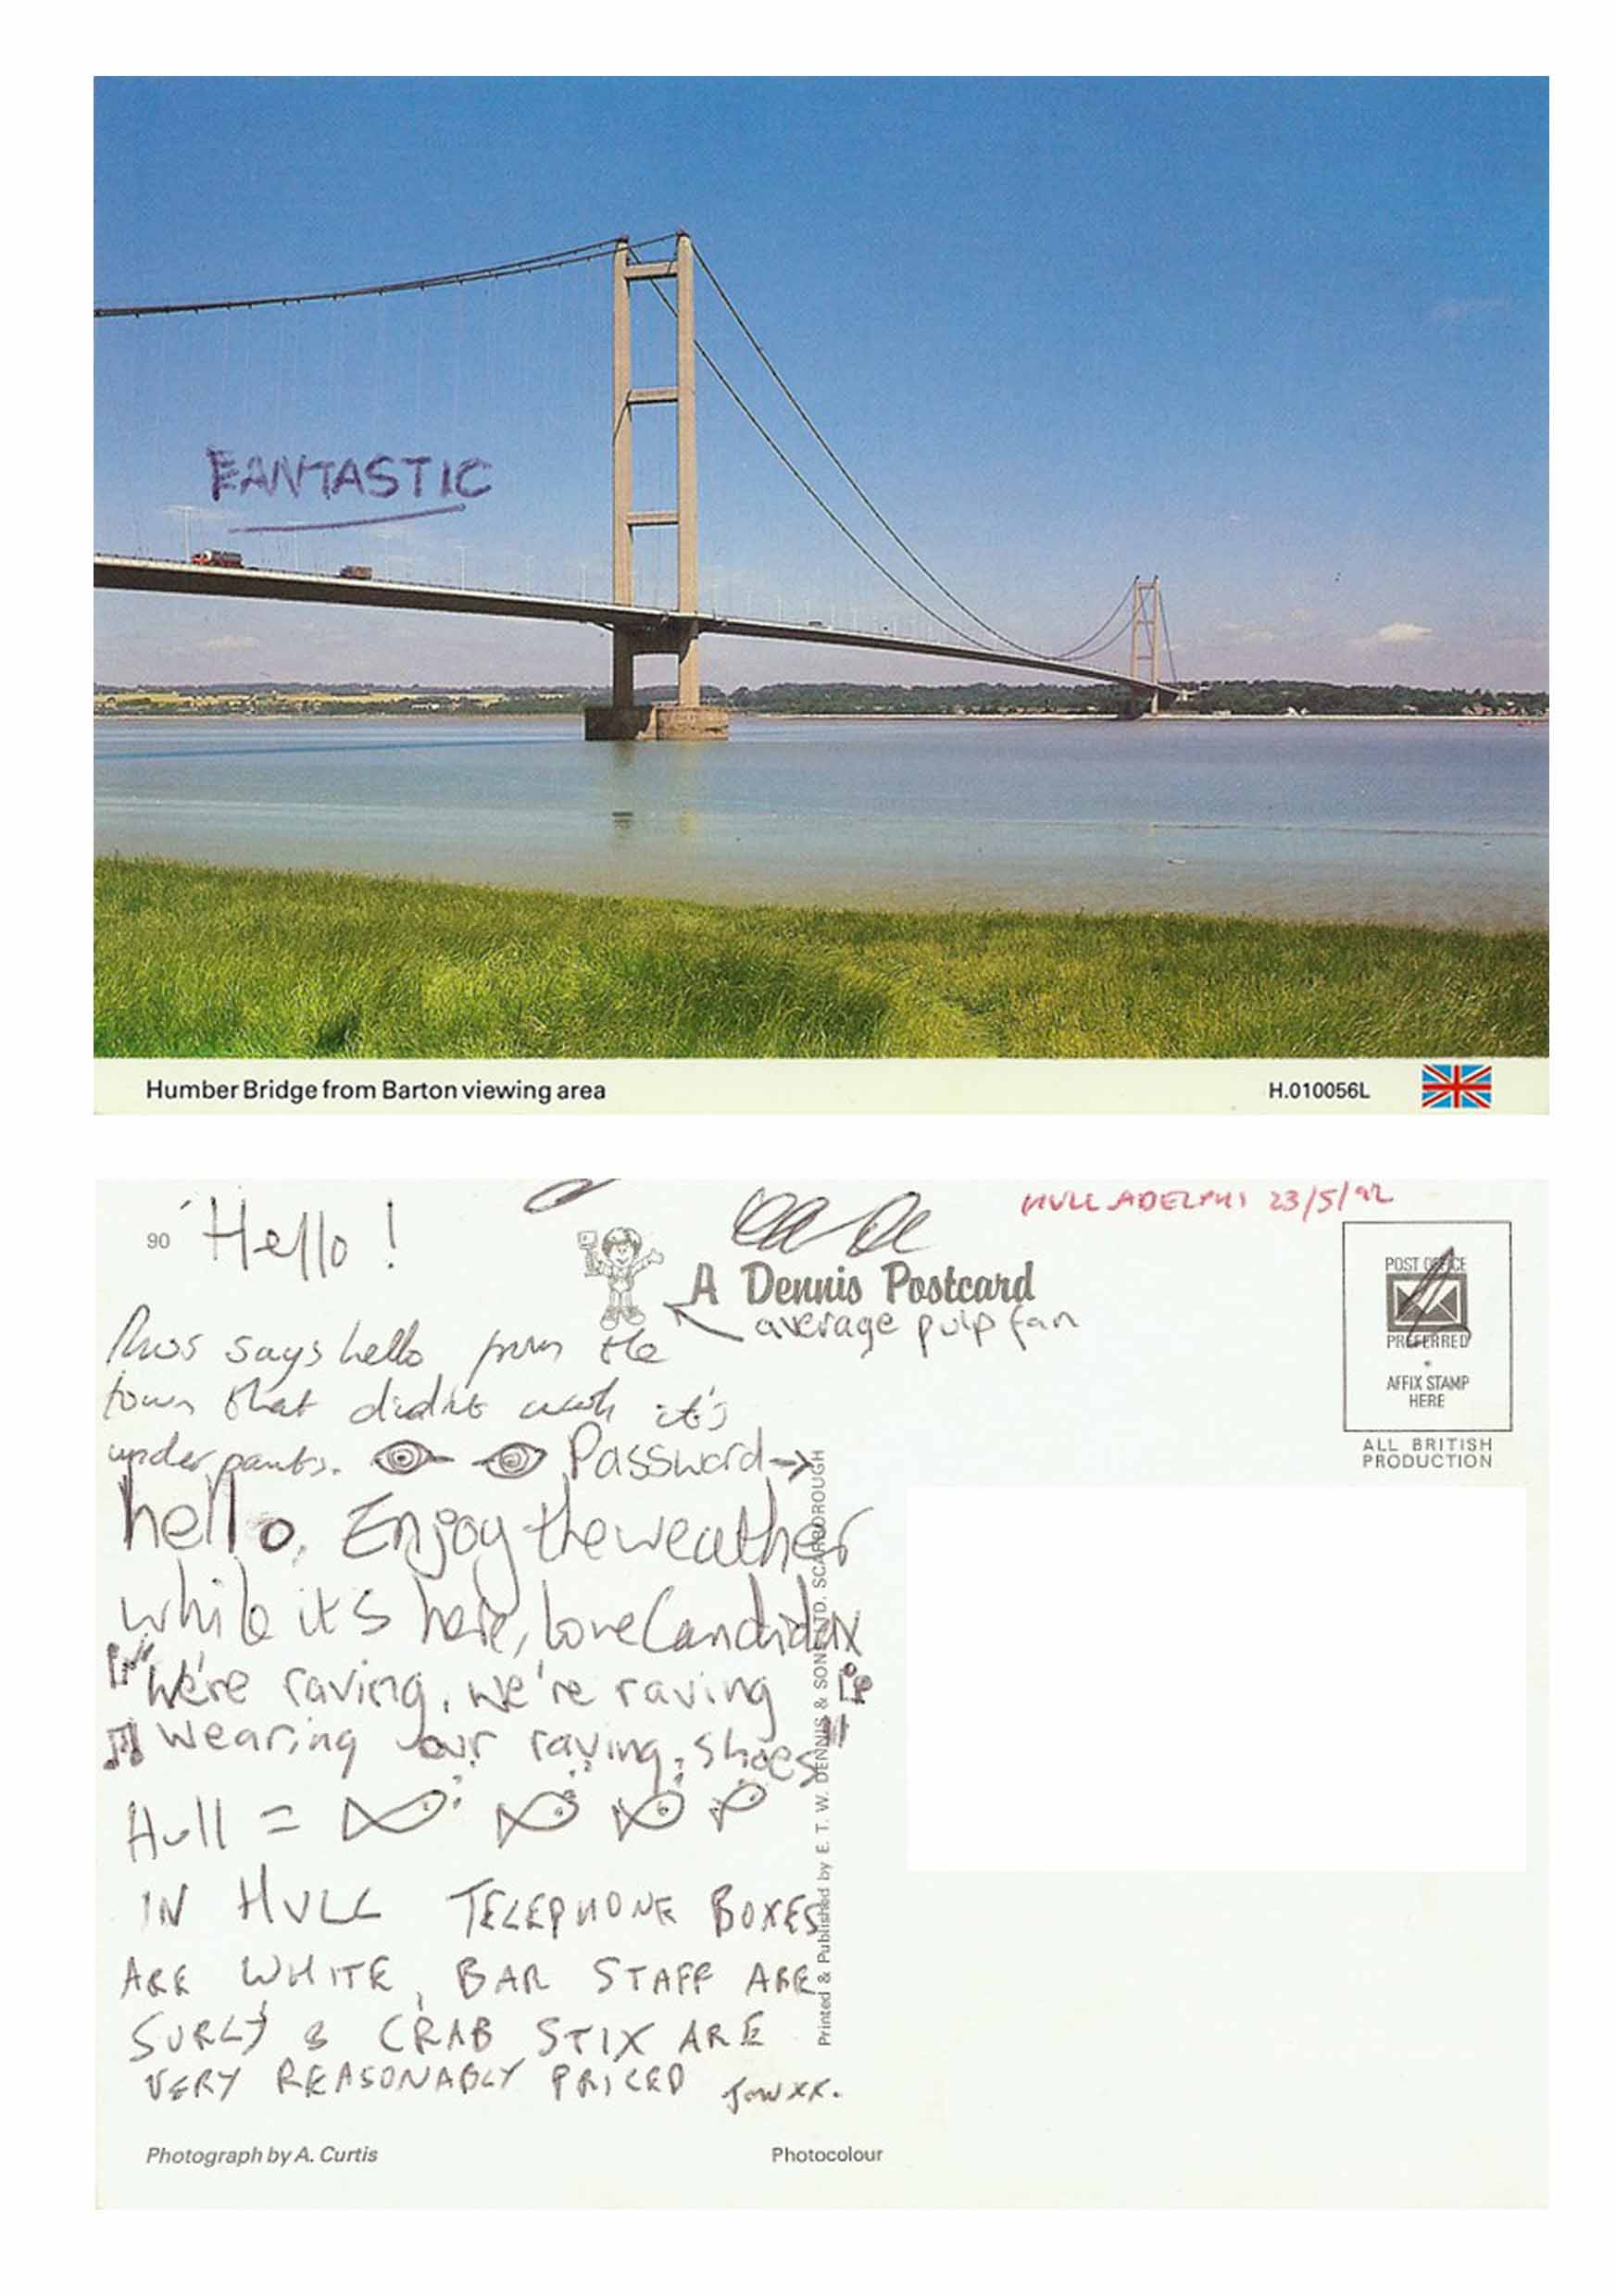 FANTASTIC
Humber Bridge from Barton viewing area
H.010056L
HULL ADELPHI 23/5/92
90
Hello!
A Dennis Postcard
average pulp fan
POST OFFICE
PREFERRED
AFFIX STAMP
HERE
ALL BRITISH
PRODUCTION
Russ says hello from the
town that didn't wash it's
underpants. Password→
hello. Enjoy the weather
while it's here, love Candida x
"We're raving, we're raving
wearing our raving shoes"
Hull =
IN HULL TELEPHONE BOXES
ARE WHITE, BAR STAFF ARE
SURLY & CRAB STIX ARE
VERY REASONABLY PRICED
xx.
Printed & Published by E. T. W. DENNIS & SONS LTD. SCARBOROUGH
Photograph by A. Curtis
Photocolour